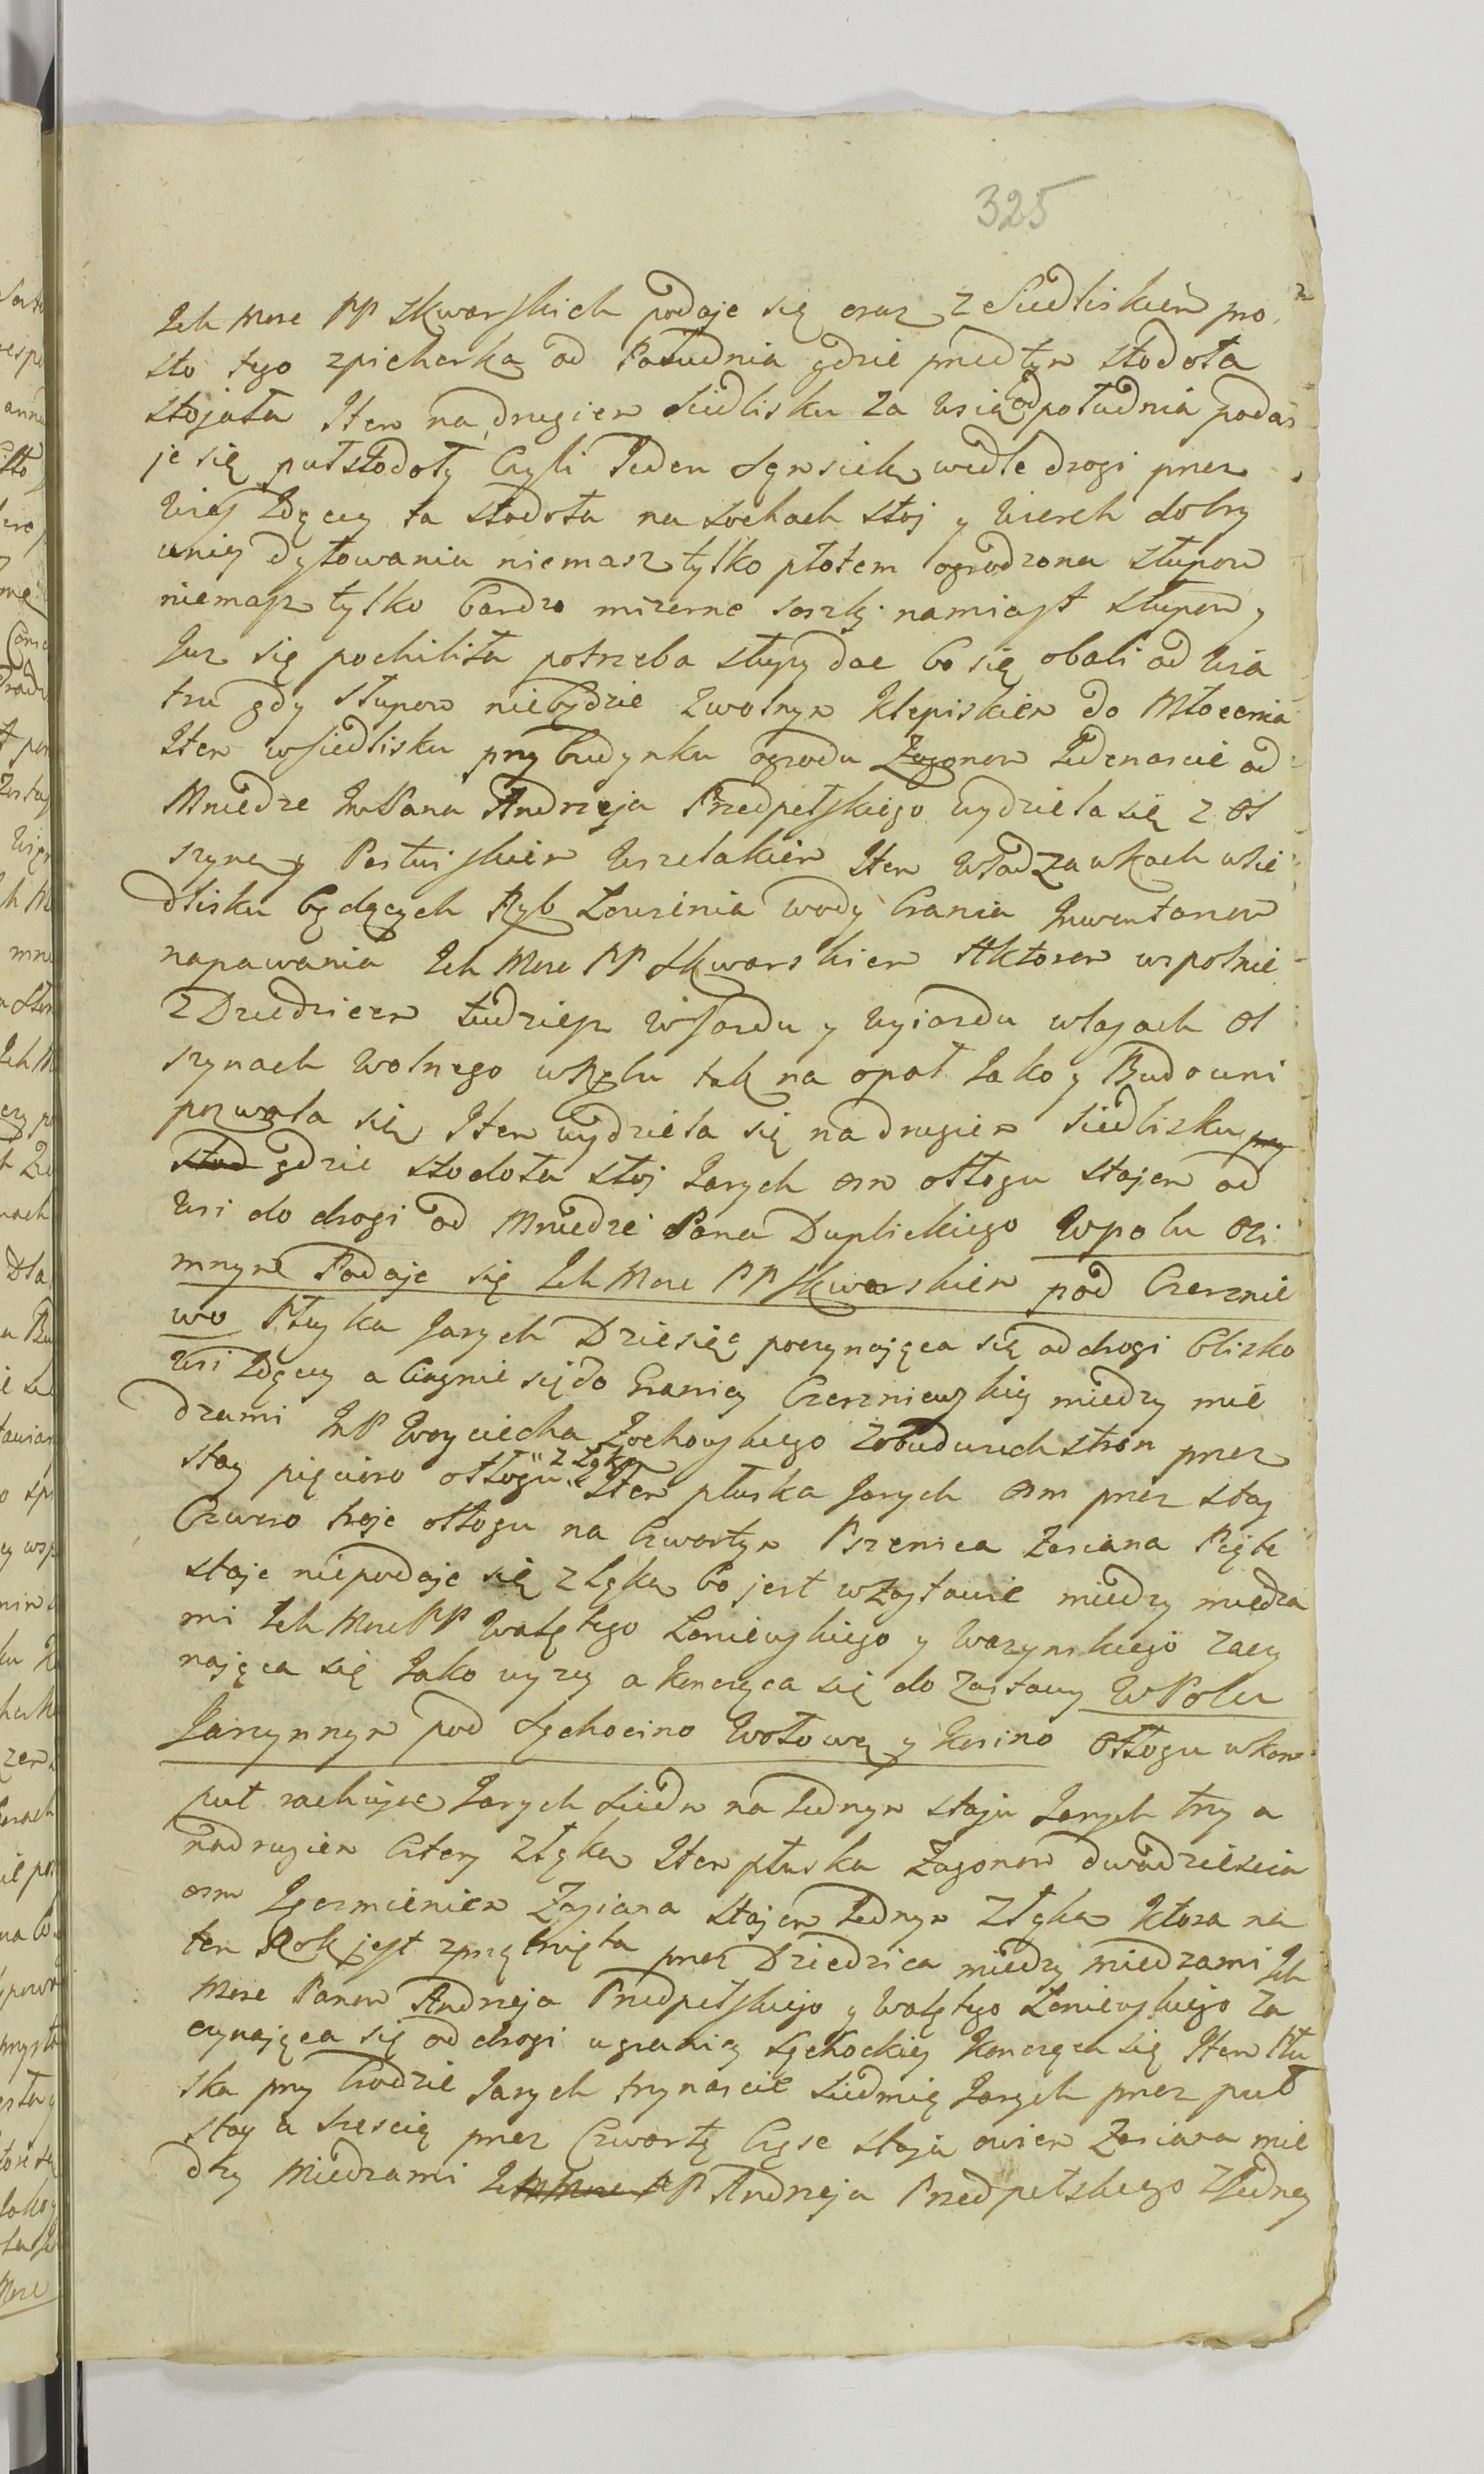 325
Ich Mose PP Skwarskich podaje się oraz z Siedliskiem pro
sto tego zpicherka od Południa gdzie przedtym stodoła
stojała Item na drugiem Siedlisku za wsią od południa poda
je się puł stodoły Czyli Jeden Sąsiek wedle drogi przez
Wieś Zdęcy ta stodoła na sochach stoj y Wierch dobry
uniey dylowania niemasz tylko płotem ogrodzona słupow
niemasz tylko bardzo mizerne soszki namiast słupow y
Juz się pochiliła potrzeba słupy dac bo się obali od Wia
tru gdy słupow niebędzie zwolnym Klepiskiem do Młocenia
Item wsiedlisku przy budynku ogrodu Zagonow Jedenascie od
Miedze JmPana Andrzeja Przedpełskiego wydziela się z Ol
szyną y Pastwiskiem wszelakiem Item wsadzawkach wsie
dlisku będących Ryb Łowienia wody brania Inwentarzow
napawania Ich Mose PP Skwarskiem Aktorom wspolnie
z Dziedzicem tudziesz wjazdu y wyiazdu wlasach Ol
szynach wolnego wrębu tak na opał Jako y Budowni
pozwala się Item wydziela się nadrugiem Siedlisku przy
stod gdzie stodoła stoj Jarych osm ołłogu stajem od
wsi do drogi od Miedze Pana Duplickiego Wpolu Ozi
mnym Podaje się Ich Mose PP Skwarskiem pod Czerznie
wo Płuska Jarych Dziesięć poczynająca się od drogi blisko
wsi Zdęcy a Ciągnie się do Granicy Czerzniewskiey miedzy mie
dzami JmP Woyciecha Żochowskiego zobudwuch stron przez
stay pięcioro ołłogu z Łąką Item płuska Jarych osm przez stay
Czworo troje ołłogu na Czwartym Pszenica Zasiana Piąte
staje niepodaje się z Łąką bo jest wzastawie miedzy miedza
mi Ich Mose PP Walętego Łoniewskiego y Wazynskiego zaczy
nająca się Jako wyzy a Kończąca się do Zastawy WPolu
Jarzynnym pod Sęchocino Wołową y Kosino Ołłogu wkom
put rachując Jarych siedm na Jednym staju Jarych trzy a
nadrugiem Cztery z Łąką Item płuska Zagonow dwadziescia
osm Jęczmieniem Zasiana stajem Jednym z Łąką Ktora na
ten Rok jest zprzątnięta przez Dziedzica miedzy miedzami Ich
Mose Panow Andrzeja Przedpełskiego y Walętego Łoniewskiego za
czynająca się od drogi ugranicy Sęchockiey Kończąca się Item Płu
ska przy brodzie Jarych trzynascie siedmią Jarych przez puł
stay a szescią przez Czwartą Częsc staja owsem Zasiana mie
dzy Miedzami Ich Mose PP Andrzeja Przedpełskiego z Jedney